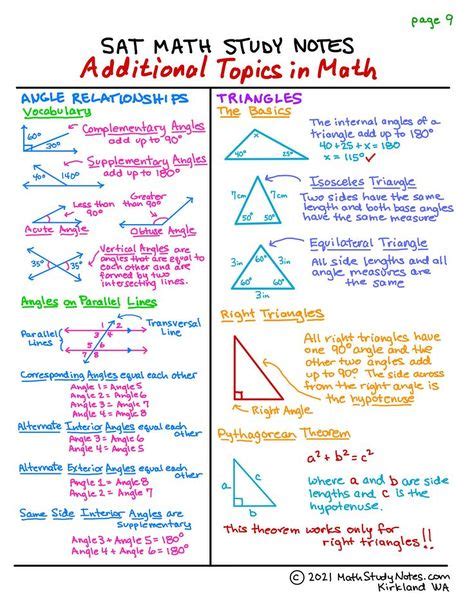 page 9
SAT MATH STUDY NOTES
Additional Topics in Math
ANGLE RELATIONSHIPS
Vocabulary
60°
30°
Complementary Angles
add up to 90°
40°
140°
Supplementary Angles
add up to 180°
Less than
90°
Acute Angle
Greater than
90°
Obtuse Angle
35°
35°
Vertical Angles are
angles that are equal to
each other and are
formed by two
intersecting lines.
Angles on Parallel Lines
Parallel
Lines
1 2
3 4
5 6
7 8
Transversal
Line
Corresponding Angles equal each other
Angle 1 = Angle 5
Angle 2 = Angle 6
Angle 3 = Angle 7
Angle 4 = Angle 8
Alternate Interior Angles equal each
other
Angle 3 = Angle 6
Angle 4 = Angle 5
Alternate Exterior Angles equal each
other
Angle 1 = Angle 8
Angle 2 = Angle 7
Same Side Interior Angles are
supplementary
Angle 3 + Angle 5 = 180°
Angle 4 + Angle 6 = 180°
TRIANGLES
The Basics
x
40°
25°
The internal angles of a
triangle add up to 180°
40 + 25 + x = 180
x = 115° ✓
7cm
7cm
50°
50°
Isosceles Triangle
Two sides have the same
length and both base angles
have the same measure
3in
60°
3in
60°
60°
3in
Equilateral Triangle
All side lengths and all
angle measures are
the same
Right Triangles
Right Angle
All right triangles have
one 90° angle and the
other two angles add
up to 90°. The side across
from the right angle is
the hypotenuse
Pythagorean Theorem
a
c
b
a² + b² = c²
where a and b are side
lengths and c is the
hypotenuse.
This theorem works only for
right triangles!!
© 2021 MathStudyNotes.com
Kirkland WA